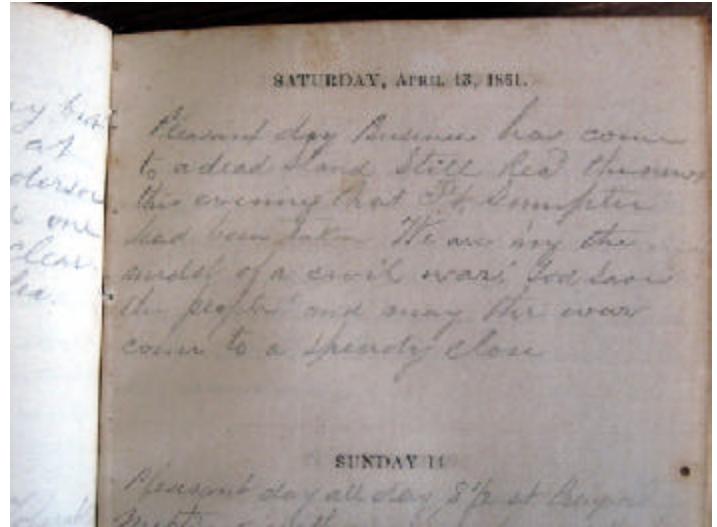 SATURDAY, APRIL 13, 1861.
Pleasant day Business has come
to a dead stand still Recd the news
this evening that Ft. Sumpter
had been taken We are in the
midst of a civil war. God save
the people and may the war
come to a speedy close
SUNDAY 14
Pleasant day all day
y
at
one
clear